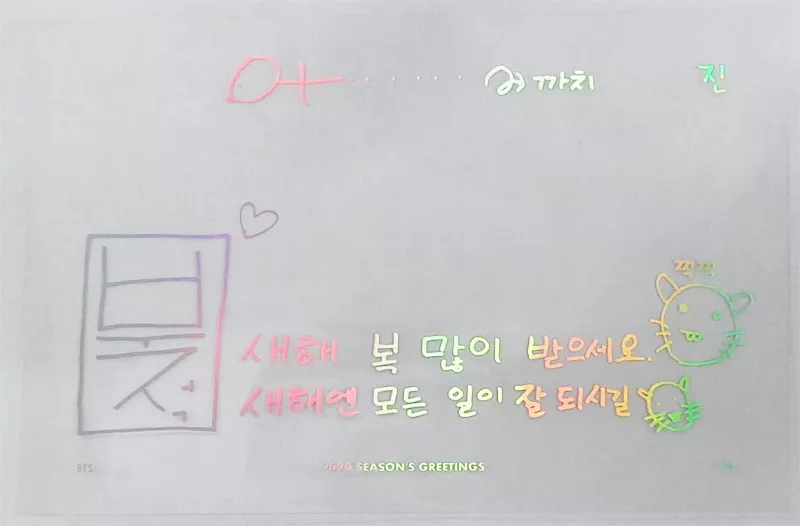 까치 진
찍찍
새해 복 많이 받으세요.
새해엔 모든 일이 잘 되시길
2020 SEASON'S GREETINGS